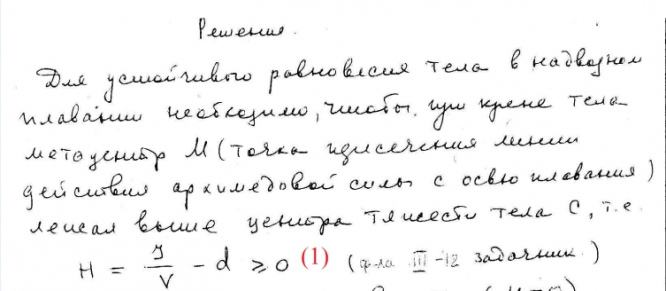 Решение.
Для устойчивого равновесия тела в надводном
плавании необходимо, чтобы при крене тела
метацентр М (точка пересечения линии
действия архимедовой силы с осью плавания)
лежал выше центра тяжести тела С, т.е.
H = J/V - d ⩾ 0 (1) (ф-ла III-12 задачник.)